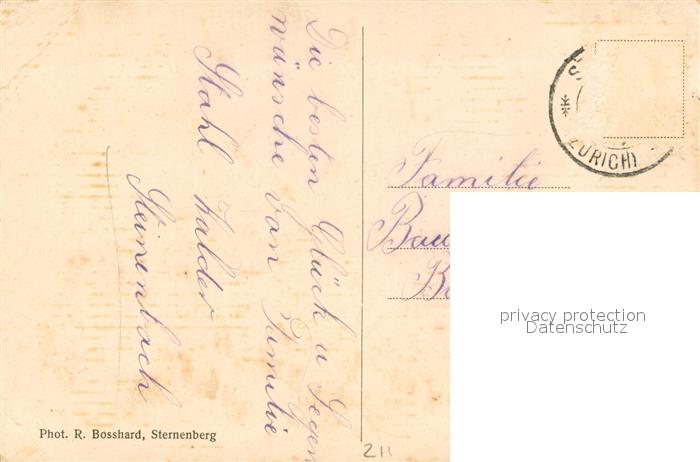 Die besten Glück u Segen
wünsche von Familie
Stahl-Halder
Steinenbach
Familie
Bau
B
(ZÜRICH)
privacy protection
Datenschutz
Phot. R. Bosshard, Sternenberg
2H